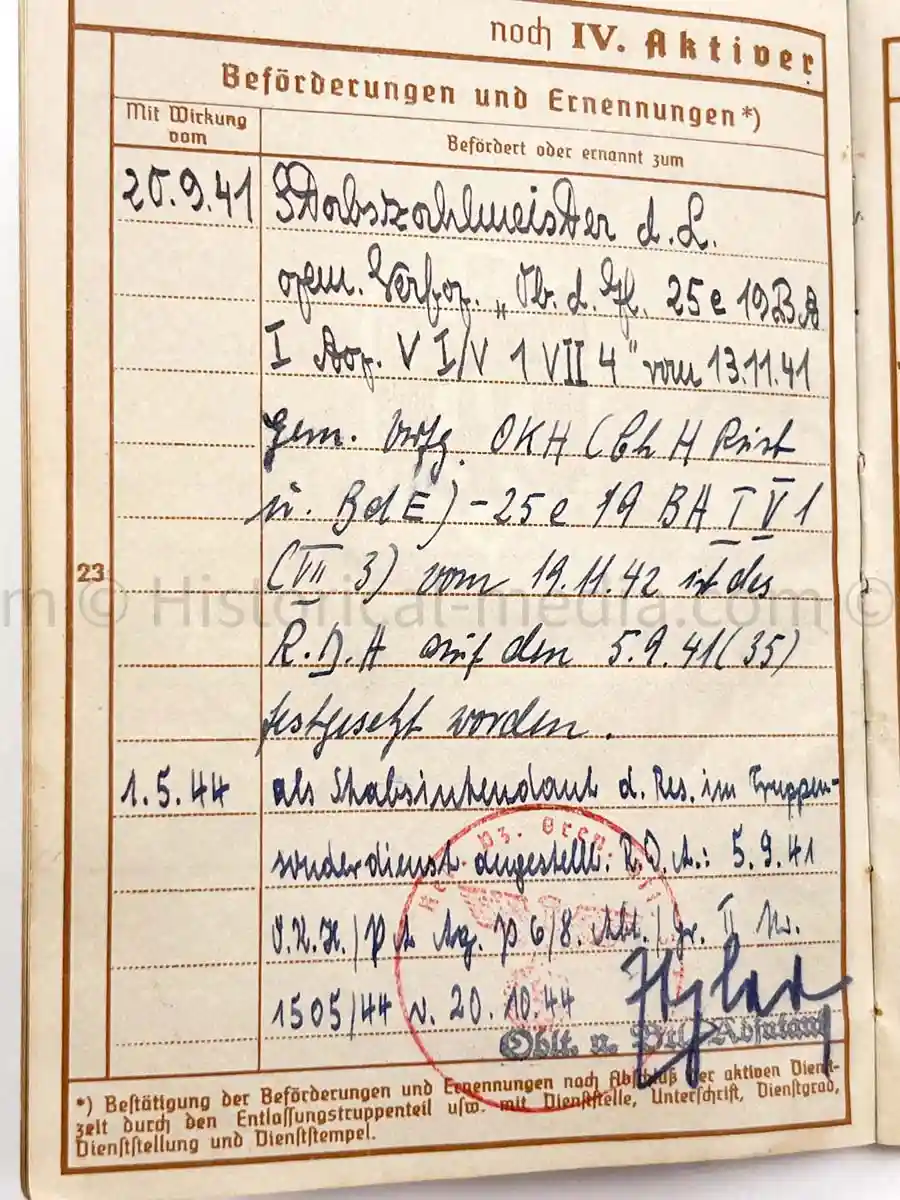 noch IV. Aktiver
Beförderungen und Ernennungen*)
Mit Wirkung vom
Befördert oder ernannt zum
20.9.41 Stabszahlmeister d. L.
gem. Verfg. „Ob. d. H. 25 e 19 BA
I Ag. V I/V 1 VII 4" vom 13.11.41
gem. Vrfg. OKH (Ch H Rüst
u. BdE) - 25 e 19 BA I V 1
(VII 3) vom 19.11.42 ist das
23
R.D.A auf den 5.9.41 (35)
festgesetzt worden.
1.5.44 als Stabsintendant d. Res. im Truppen-
sonderdienst angestellt. R.D.A.: 5.9.41
O.K.H./P A Ag. P 6/8. Abt./ II Nr.
1505/44 v. 20.10.44
Oblt. u. Btl. Adjutant
*) Bestätigung der Beförderungen und Ernennungen nach Abschluß der aktiven Dienst-
zeit durch den Entlassungstruppenteil usw. mit Dienststelle, Unterschrift, Dienstgrad,
Dienststellung und Dienststempel.
m © Historical-media.com ©